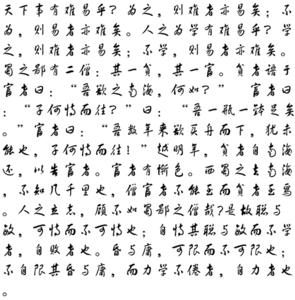 天下事有难易乎?为之,则难者亦易矣;不
为,则易者亦难矣。人之为学有难易乎?学
之,则难者亦易矣;不学,则易者亦难矣。
蜀之鄙有二僧:其一贫,其一富。贫者语于
富者曰:“吾欲之南海,何如?” 富者曰
:“子何恃而往?”曰:“吾一瓶一钵足矣
。”富者曰:“吾数年来欲买舟而下,犹未
能也,子何恃而往!”越明年,贫者自南海
还,以告富者。富者有惭色。西蜀之去南海
,不知几千里也,僧富者不能至而贫者至焉
。人之立志,顾不如蜀鄙之僧哉?是故聪与
敏,可恃而不可恃也;自恃其聪与敏而不学
者,自败者也。昏与庸,可限而不可限也;
不自限其昏与庸,而力学不倦者,自力者也
。